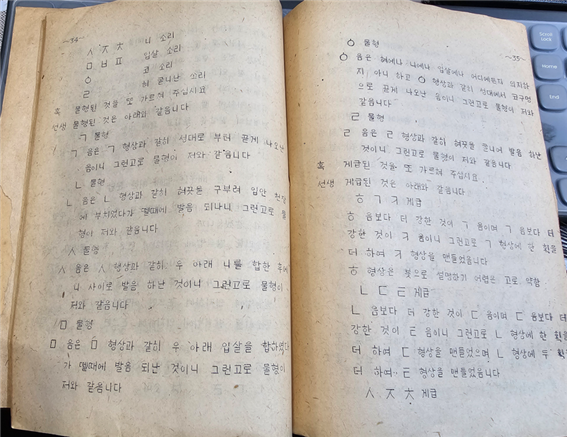 ~34~
ㅅ ㅈ ㅊ 니 소리
ㅁ ㅂ ㅍ 입살 소리
ㅇ 코 소리
ㄹ 혀 끝나신 소리
혹 물형된 것을 또 가르쳐 주십시요
선생 물형된 것은 아래와 같읍니다
ㄱ 물형
ㄱ 음은 ㄱ 형상과 같히 선대로 부터 끝게 나오난
음이니 그런고로 물형이 저와 같읍니다
ㄴ 물형
ㄴ 음은 ㄴ 형상과 같히 혀끗을 구부려 입안 천장
에 부치었다가 뗄때에 발음 되나니 그런고로 물
형이 저와 같읍니다
ㅅ 물형
ㅅ 음은 ㅅ 형상과 같히 우 아래 니를 합한 후에
니 사이로 발음 하난 것이니 그런고로 물형이
저와 같읍니다
ㅁ 물형
ㅁ 음은 ㅁ 형상과 같히 우 아래 입살을 합하였다
가 뗄때에 발음 되난 것이니 그런고로 물형이
저와 같읍니다
~35~
ㅇ 물형
ㅇ 음은 혀에나 니에나 입살에나 어디에던지 의지하
지 아니 하고 ㅇ 형상과 같히 선대에서 굼구면
으로 끝게 나오난 음이니 그런고로 물형이 저와
같읍니다
ㄹ 물형
ㄹ 음은 ㄹ 형상과 같히 혀끗을 굴니어 발음 하난
것이니 그런고로 물형이 저와 같읍니다
혹 계급된 것을 또 가르쳐 주십시요
선생 계급된 것은 아래와 같읍니다
ㅎ ㄱ ㅋ 계급
ㅎ 음보다 더 강한 것이 ㄱ 음이며 ㄱ 음보다 더
강한 것이 ㅋ 음이니 그런고로 ㄱ 형상에 한 획을
더 하여 ㅋ 형상을 맨들었읍니다
ㅎ 형상은 붓으로 설명하기 어렵은 고로 약함
ㄴ ㄷ ㅌ 계급
ㄴ 음보다 더 강한 것이 ㄷ 음이며 ㄷ 음보다 더
강한 것이 ㅌ 음이니 그런고로 ㄴ 형상에 한 획을
더 하여 ㄷ 형상을 맨들었으며 ㄴ 형상에 두 획
더 하여 ㅌ 형상을 맨들었읍니다
ㅅ ㅈ ㅊ 계급
Home
End